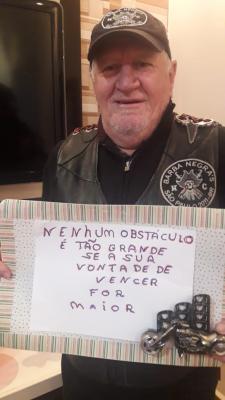 BARBA NEGRA'S
M C
NENHUM OBSTÁCULO
É TÃO GRANDE
SE A SUA
VONTADE DE
VENCER
FOR
MAIOR